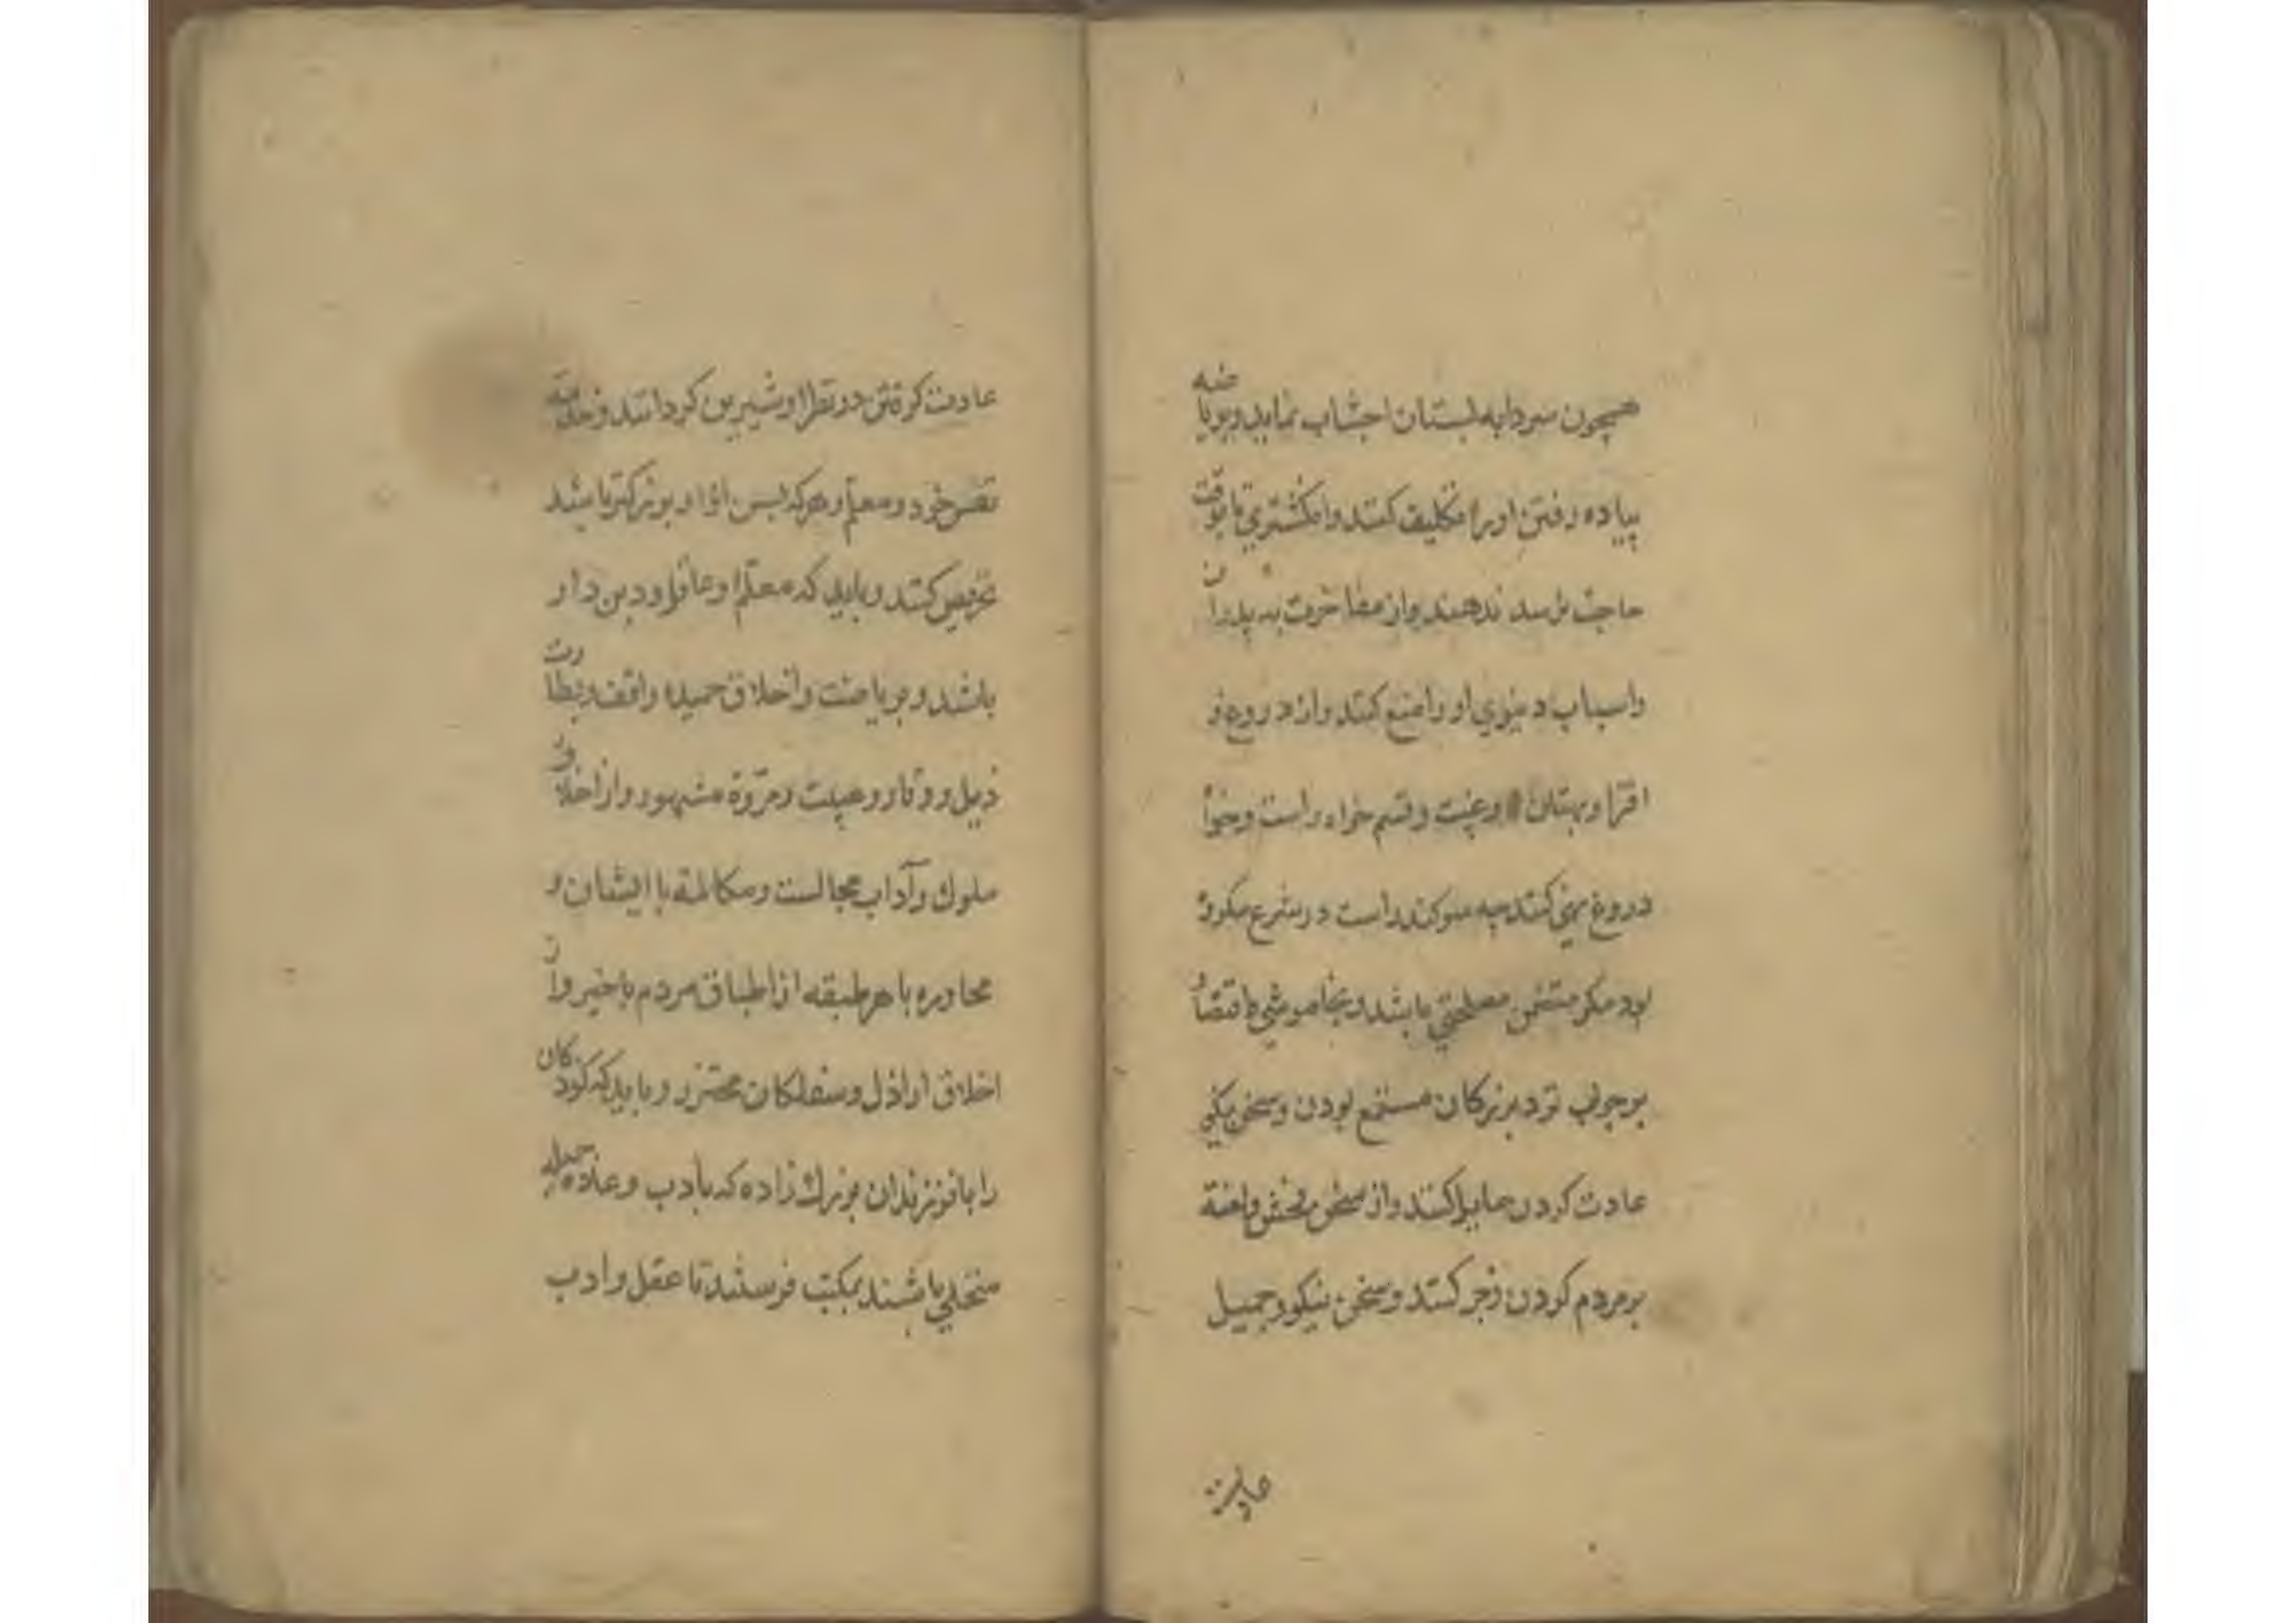 همچون سردابه لبستان اجتناب نماید و بریاضه
پیاده رفتن او را تکلیف کنند و انکشتری تا بوقت
حاجت نرسد ندهند و از مفاخرت به پدران
و اسباب دنیوی او را منع کنند و از دروغ و
افترا و بهتان و غیبت و قسم خواه راست و خواه
دروغ نهی کنند چه سوکند راست در شرع مکروه
بود مکر متضمن مصلحتی باشد و بخاموشی باقتضاء
بر جواب نزد بزرکان مستمع بودن و سخن نیکی
عادت کردن مایل کنند و از سخن فحش و لعنة
بر مردم کردن زجر کنند و سخن نیکو و جمیل
عادت
عادت کرفتن در نظر او شیرین کردانند و خدمة
نفس خود و معلم و هر که بسن ازو بزرکتر باشد
تحریص کنند و باید که معلم او عاقل و دین دار
باشد و بریاضت و اخلاق حمیده واقف و بطهارت
ذیل و وقار و هیبت و مروّة مشهور و از اخلاق
ملوك و آداب مجالست و مکالمة با ایشان و
محاوره با هر طبقه از اطباق مردم با خبر و از
اخلاق اراذل و سفلکان محترز و باید که کودکان
را با فرزندان بزرك زاده که بادب و عادة جمیله
متحلی باشند بمکتب فرستند تا عقل و ادب